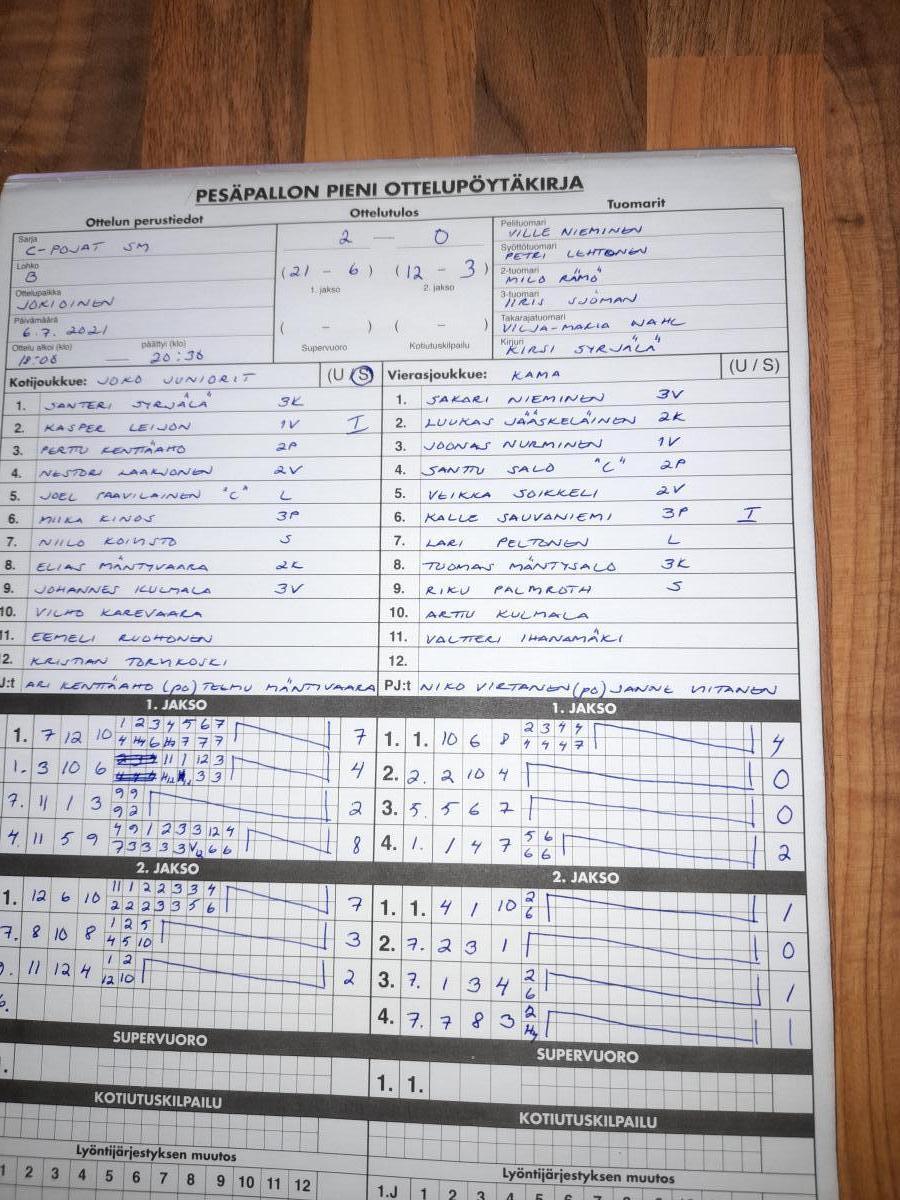 PESÄPALLON PIENI OTTELUPÖYTÄKIRJA
Ottelun perustiedot
Sarja
C-POJAT SM
Lohko
B
Ottelupaikka
JOKIOINEN
Päivämäärä
6.7. 2021
Ottelu alkoi (klo) päättyi (klo)
18:08 — 20:38
Ottelutulos
2 — 0
(21 - 6) (12 - 3)
1. jakso 2. jakso
( - ) ( - )
Supervuoro Kotiutuskilpailu
Tuomarit
Pelituomari
VILLE NIEMINEN
Syöttötuomari
PETRI LEHTONEN
2-tuomari
MILO RÄMÖ
3-tuomari
IIRIS SJÖMAN
Takarajatuomari
VILJA-MARIA WAHL
Kirjuri
KIRSI SYRJÄLÄ
Kotijoukkue: JOKO JUNIORIT (U/S)
1. SANTERI SYRJÄLÄ 3K
2. KASPER LEIJON 1V I
3. PERTTU KENTTÄAHO 2P
4. NESTORI LAAKSONEN 2V
5. JOEL PAAVILAINEN "C" L
6. MIIKA KINOS 3P
7. NIILO KOIVISTO S
8. ELIAS MÄNTYVAARA 2K
9. JOHANNES KULMALA 3V
10. VILHO KAREVAARA
11. EEMELI RUOHONEN
2. KRISTIAN TORVIKOSKI
J:t ARI KENTTÄAHO (PO) TEEMU MÄNTYVAARA
Vierasjoukkue: KAMA (U / S)
1. SAKARI NIEMINEN 3V
2. LUUKAS JÄÄSKELÄINEN 2K
3. JOONAS NURMINEN 1V
4. SANTTU SALO "C" 2P
5. VEIKKA SOIKKELI 2V
6. KALLE SAUVANIEMI 3P I
7. LARI PELTONEN L
8. TUOMAS MÄNTYSALO 3K
9. RIKU PALMROTH S
10. ARTTU KULMALA
11. VALTTERI IHANAMÄKI
12.
PJ:t NIKO VIRTANEN (PO) JANNE VIITANEN
1. JAKSO
1 2 3 4 5 6 7
1. 7 12 10 7
1. 3 10 6 4
9 9
7. 11 1 3 2
9 2
4 9 1 2 3 3 12 4
4. 11 5 9 8
1. JAKSO
2 3 4 4
1. 1. 10 6 8 4
4 4 4 7
2. 2. 2 10 4 0
3. 5. 5 6 7 0
5 6
4. 1. 1 4 7 2
6 6
2. JAKSO
11 1 2 2 3 3 4
1. 12 6 10 7
2 2 2 3 3 5 6
1 2 5
7. 8 10 8 3
4 5 10
1 2
11 12 4 2
12 10
6.
2. JAKSO
2
1. 1. 4 1 10 1
6
2. 7. 2 3 1 0
2
3. 7. 1 3 4 1
6
2
4. 7. 7 8 3 1
SUPERVUORO
KOTIUTUSKILPAILU
Lyöntijärjestyksen muutos
1 2 3 4 5 6 7 8 9 10 11 12
SUPERVUORO
1. 1.
KOTIUTUSKILPAILU
Lyöntijärjestyksen muutos
1.J 1 2 3 4 5 6 7 8